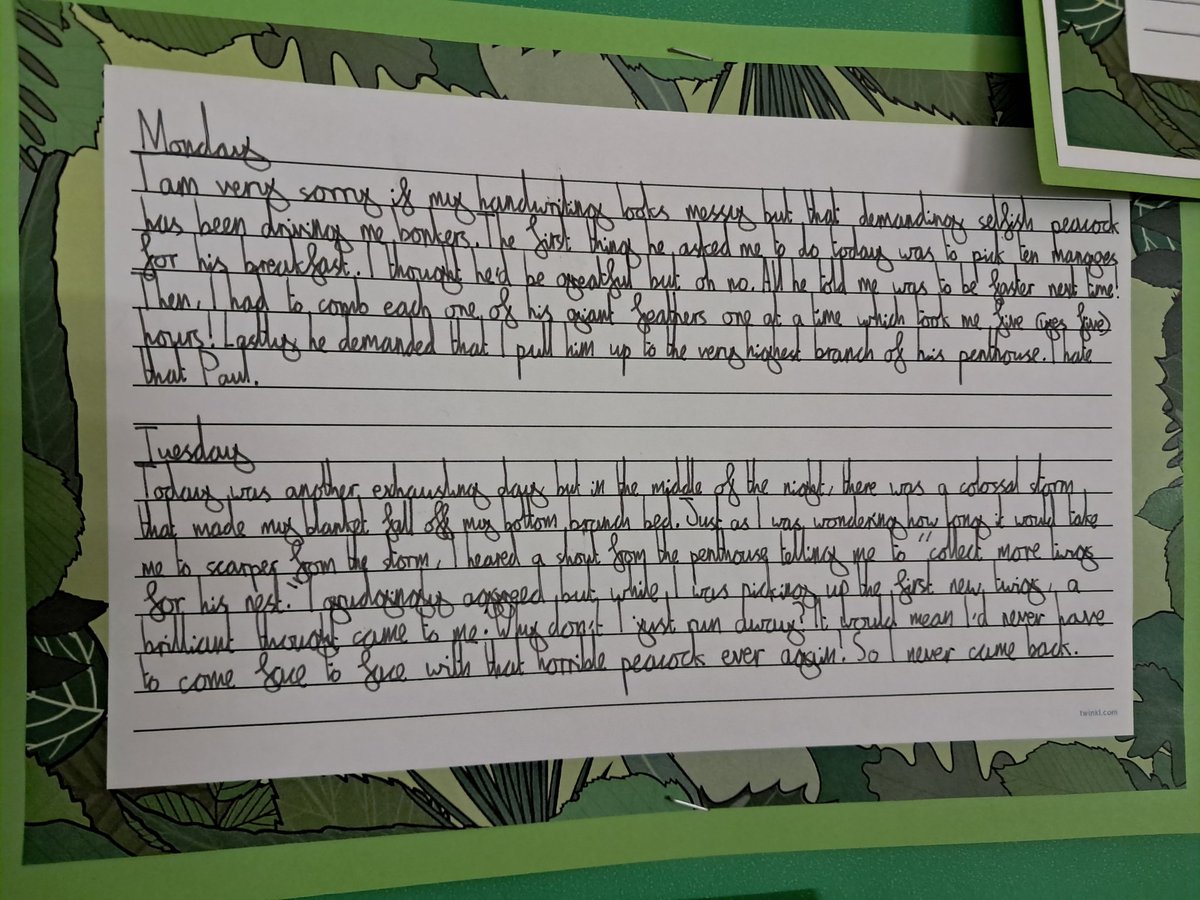 Monday
I am very sorry if my handwriting looks messy but that demanding selfish peacock
has been driving me bonkers. The first thing he asked me to do today was to pick ten mangoes
for his breakfast. I thought he'd be greatful but oh no. All he told me was to be faster next time!
Then, I had to comb each one of his giant feathers one at a time which took me five (yes five)
hours! Lastly he demanded that I pull him up to the very highest branch of his penthouse. I hate
that Paul.
Tuesday
Today was another exhausting day but in the middle of the night, there was a colossal storm
that made my blanket fall off my bottom branch bed. Just as I was wondering how long it would take
me to scarper from the storm, I heared a shout from the penthouse telling me to "collect more twigs
for his nest." I grudgingly agreed but while I was picking up the first new twigs, a
brilliant thought came to me. "Why don't I just run away?" It would mean I'd never have
to come face to face with that horrible peacock ever again! So I never came back.
twinkl.com